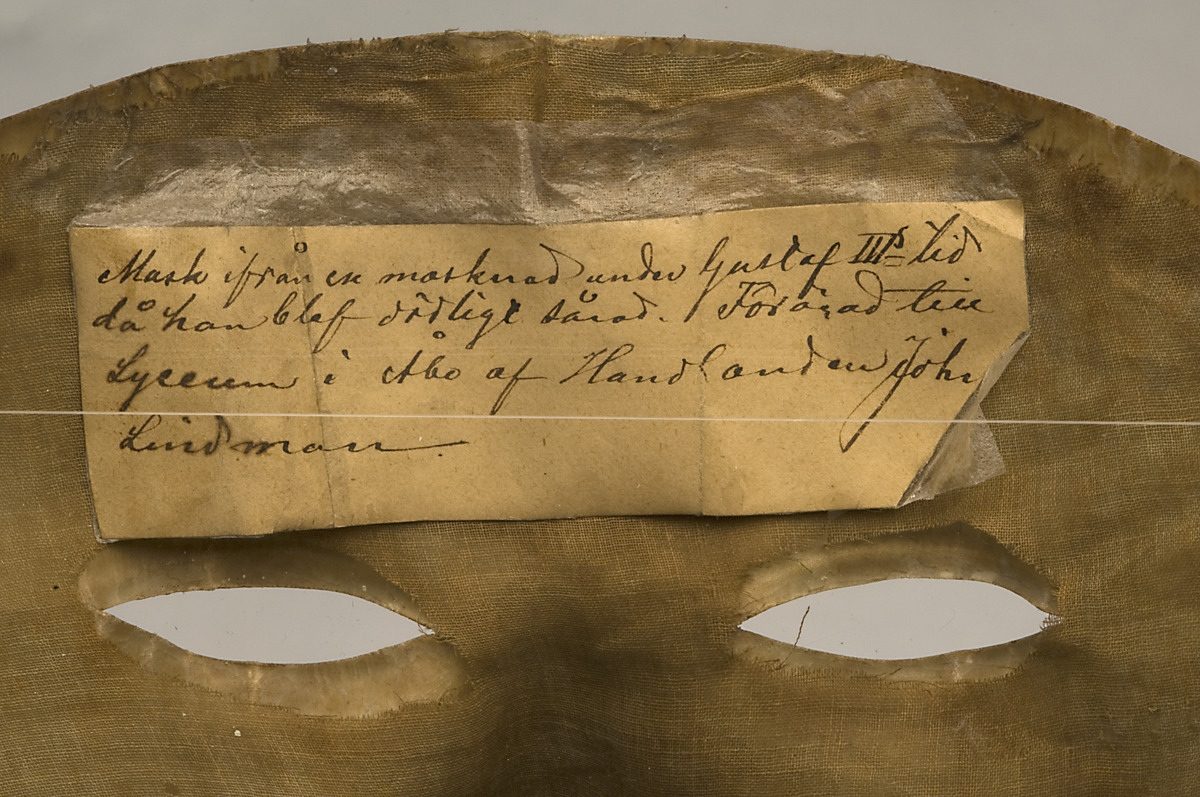 Mask ifrån en maskrad under Gustaf III's tid
då han blef dödligt sårad. Förärad till
Lyceum i Åbo af Handlanden Joh
Lindman.